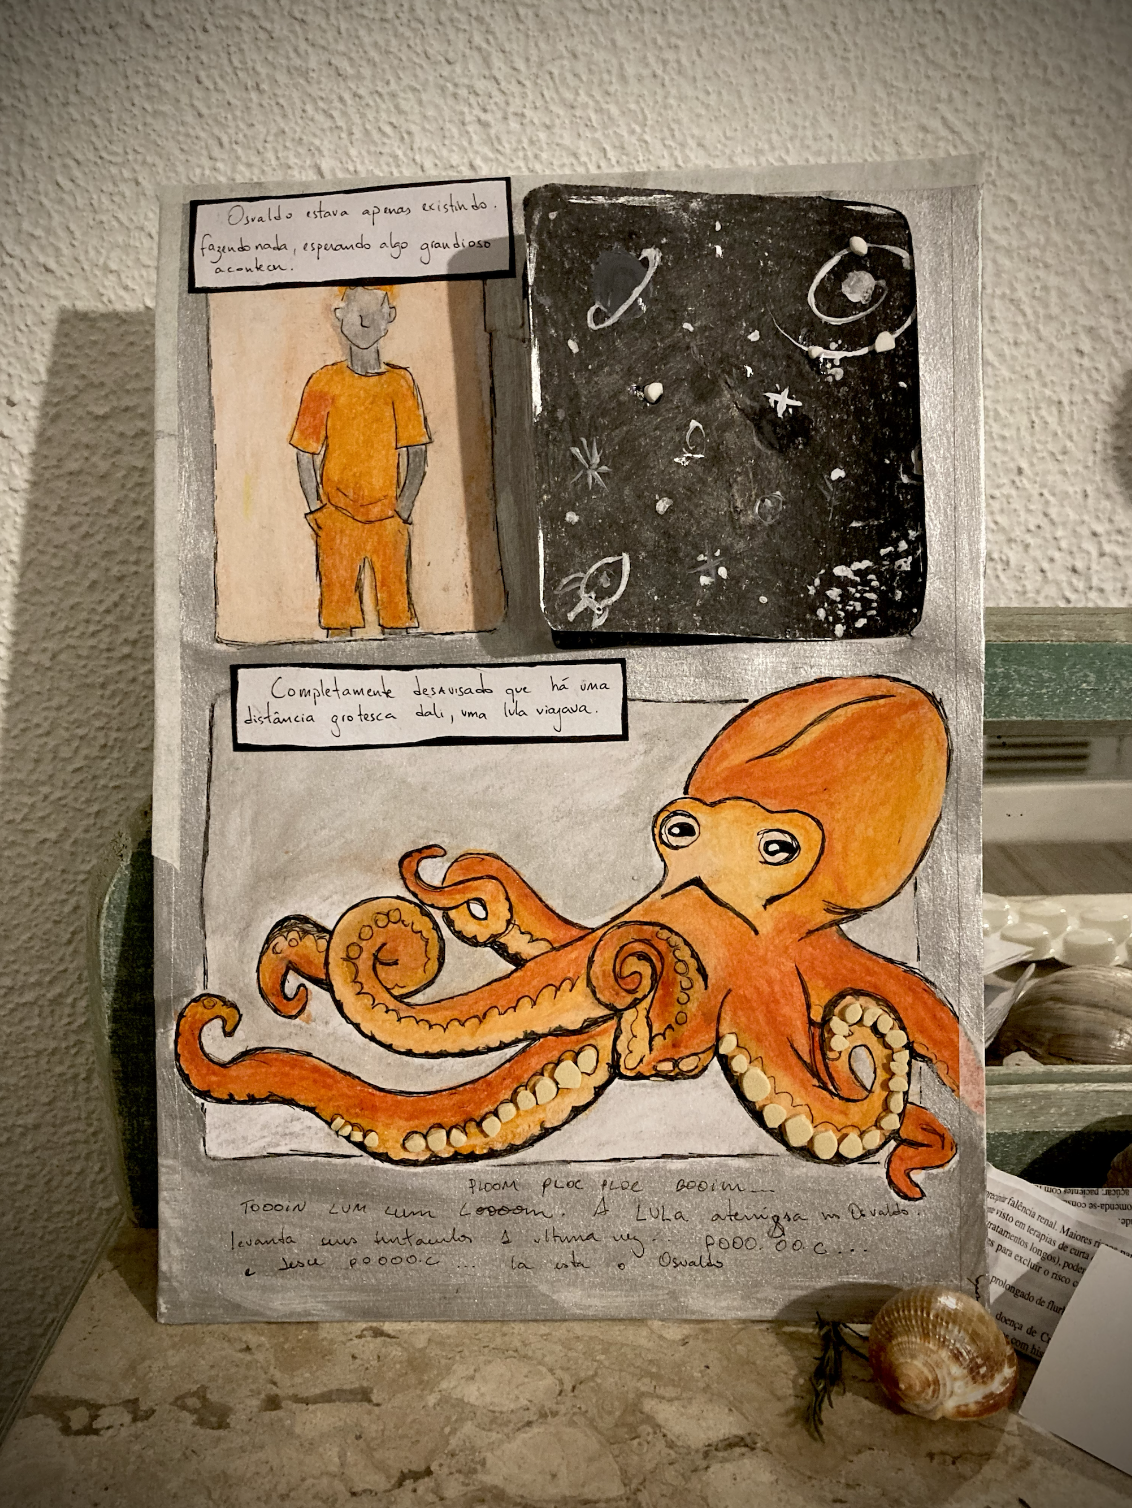 Osvaldo estava apenas existindo.
fazendo nada, esperando algo grandioso
acontecer.
Completamente desavisado que há uma
distância grotesca dali, uma lula viajava.
PLOOM PLOC PLOC BOOIM...
TOOOIN LUM LUM. A LULA aterrissa no Osvaldo.
levanta seus tentaculos A ultima vez... POOO.OO.C...
e desce POOOO.C... la esta o Osvaldo
falência renal. Maiores
visto em terapias de curta
tratamentos longos), pode
para excluir o risco
prolongado de
doença de
com